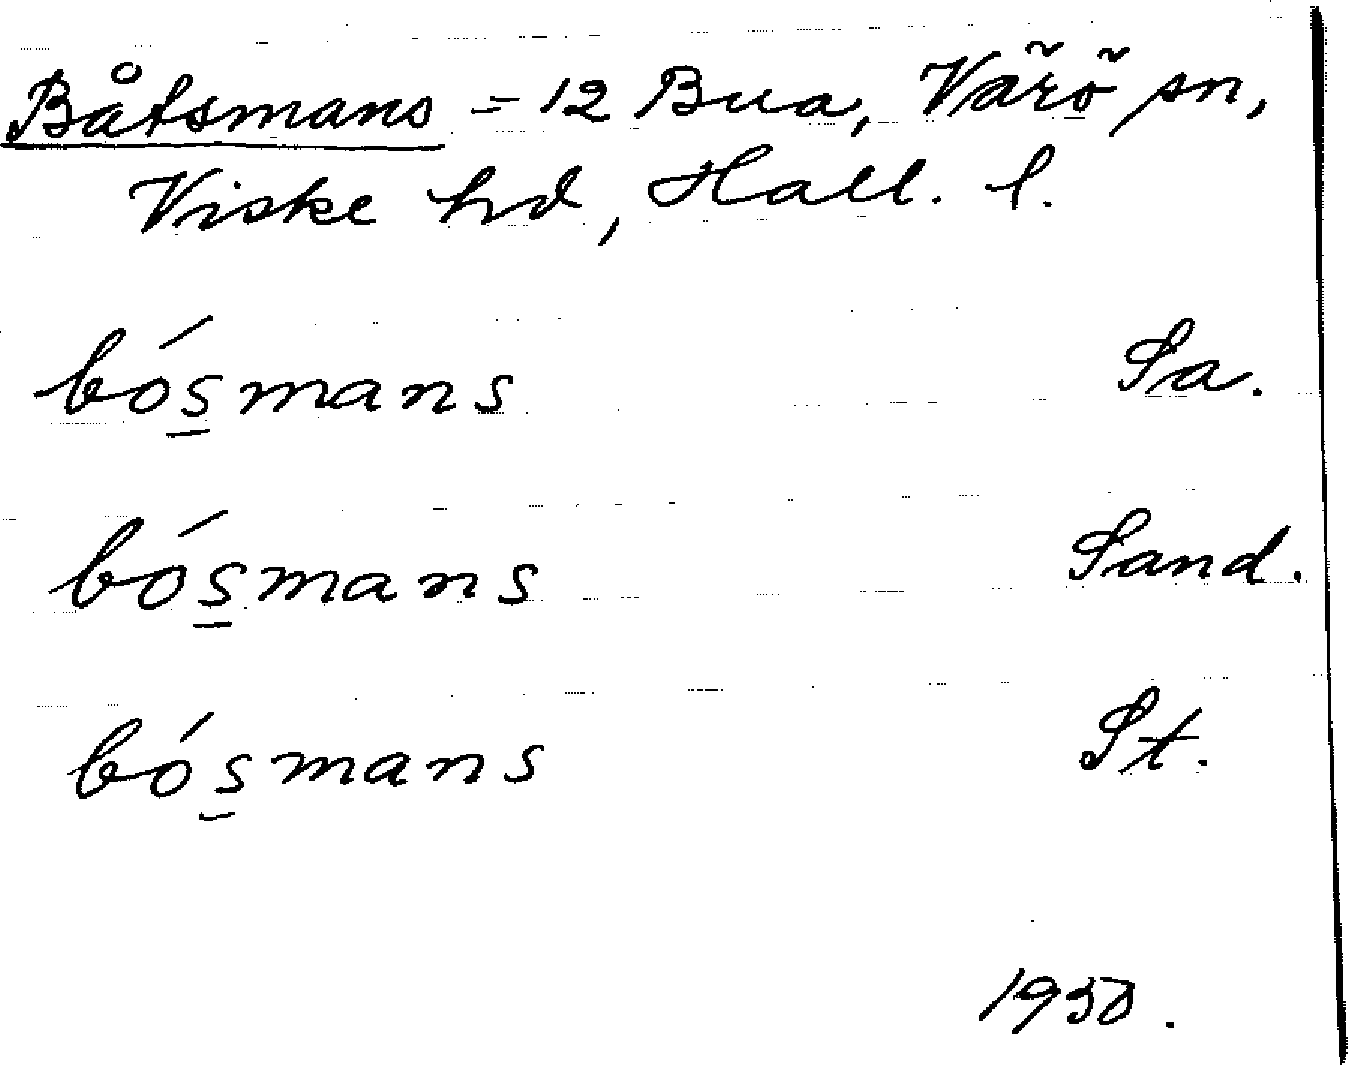 Båtsmans = 12 Bua, Värö sn,
Viske hd, Hall. l.
bós̲mans Sa.
bós̲mans Sand.
bós̲mans St.